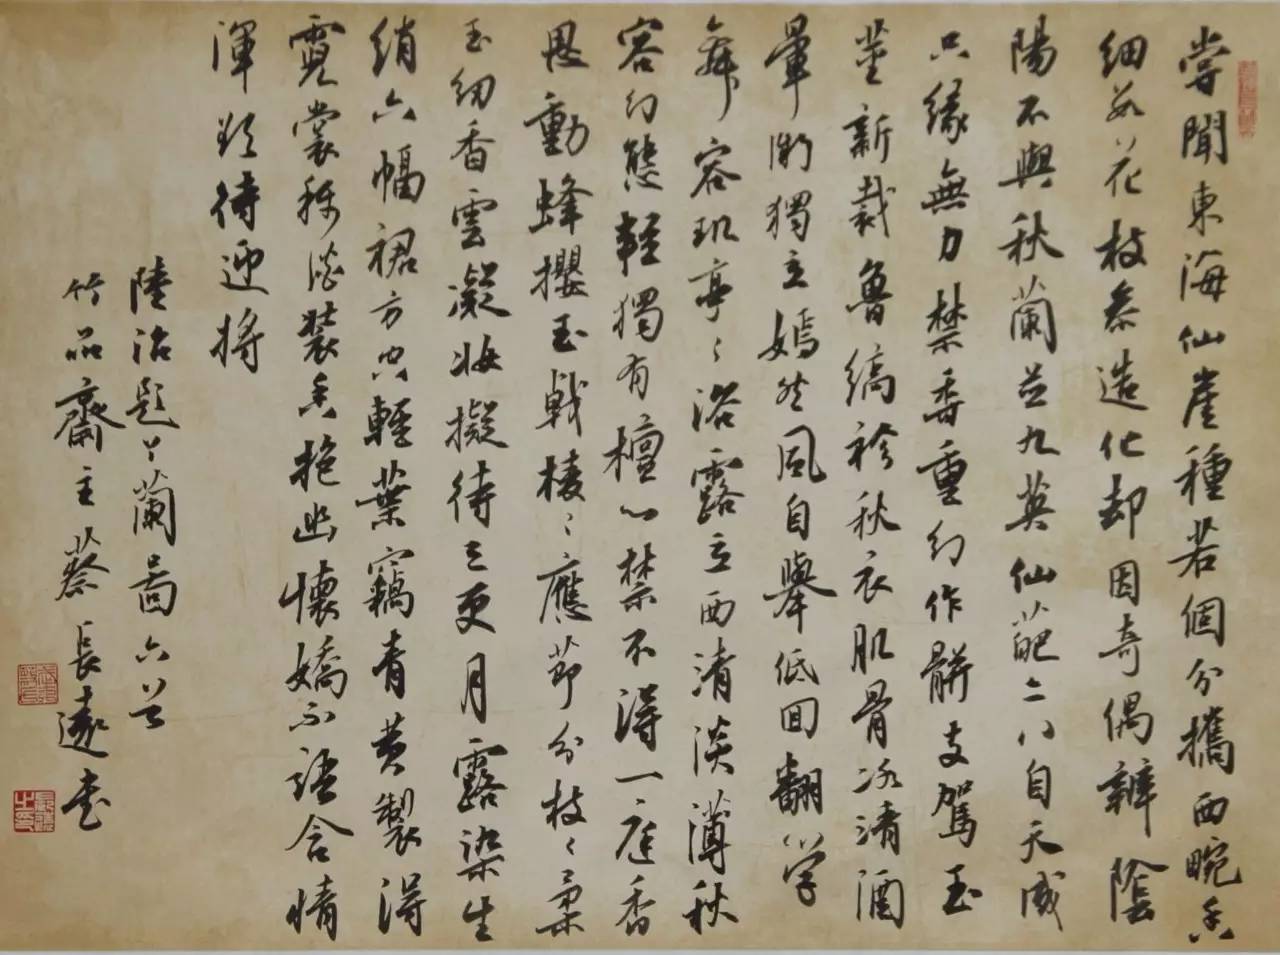 嘗聞東海仙崖種若個分攜西畹香
細數花枝參造化却因奇偶辨陰
陽不與秋蘭並九英仙葩二八自天成
只緣無力禁香重幻作骈支駕玉
莖新裁魯縞袗秋衣肌骨冰清酒
暈微獨立嫣然風自舉低回翻學
舞容玭亭亭浴露立西清淡薄秋
容幻態輕獨有檀心禁不得一庭香
思動蜂攖玉戟棱棱應節分枝枝柔
玉紉香雲凝妝擬待三更月露染生
綃六幅裙方空輕葉竊青黃製得
霓裳稱澹裝香抱幽懷嬌不語含情
渾欲待迎將
陸治題丫蘭畵六首
竹品齋主蔡長遠書